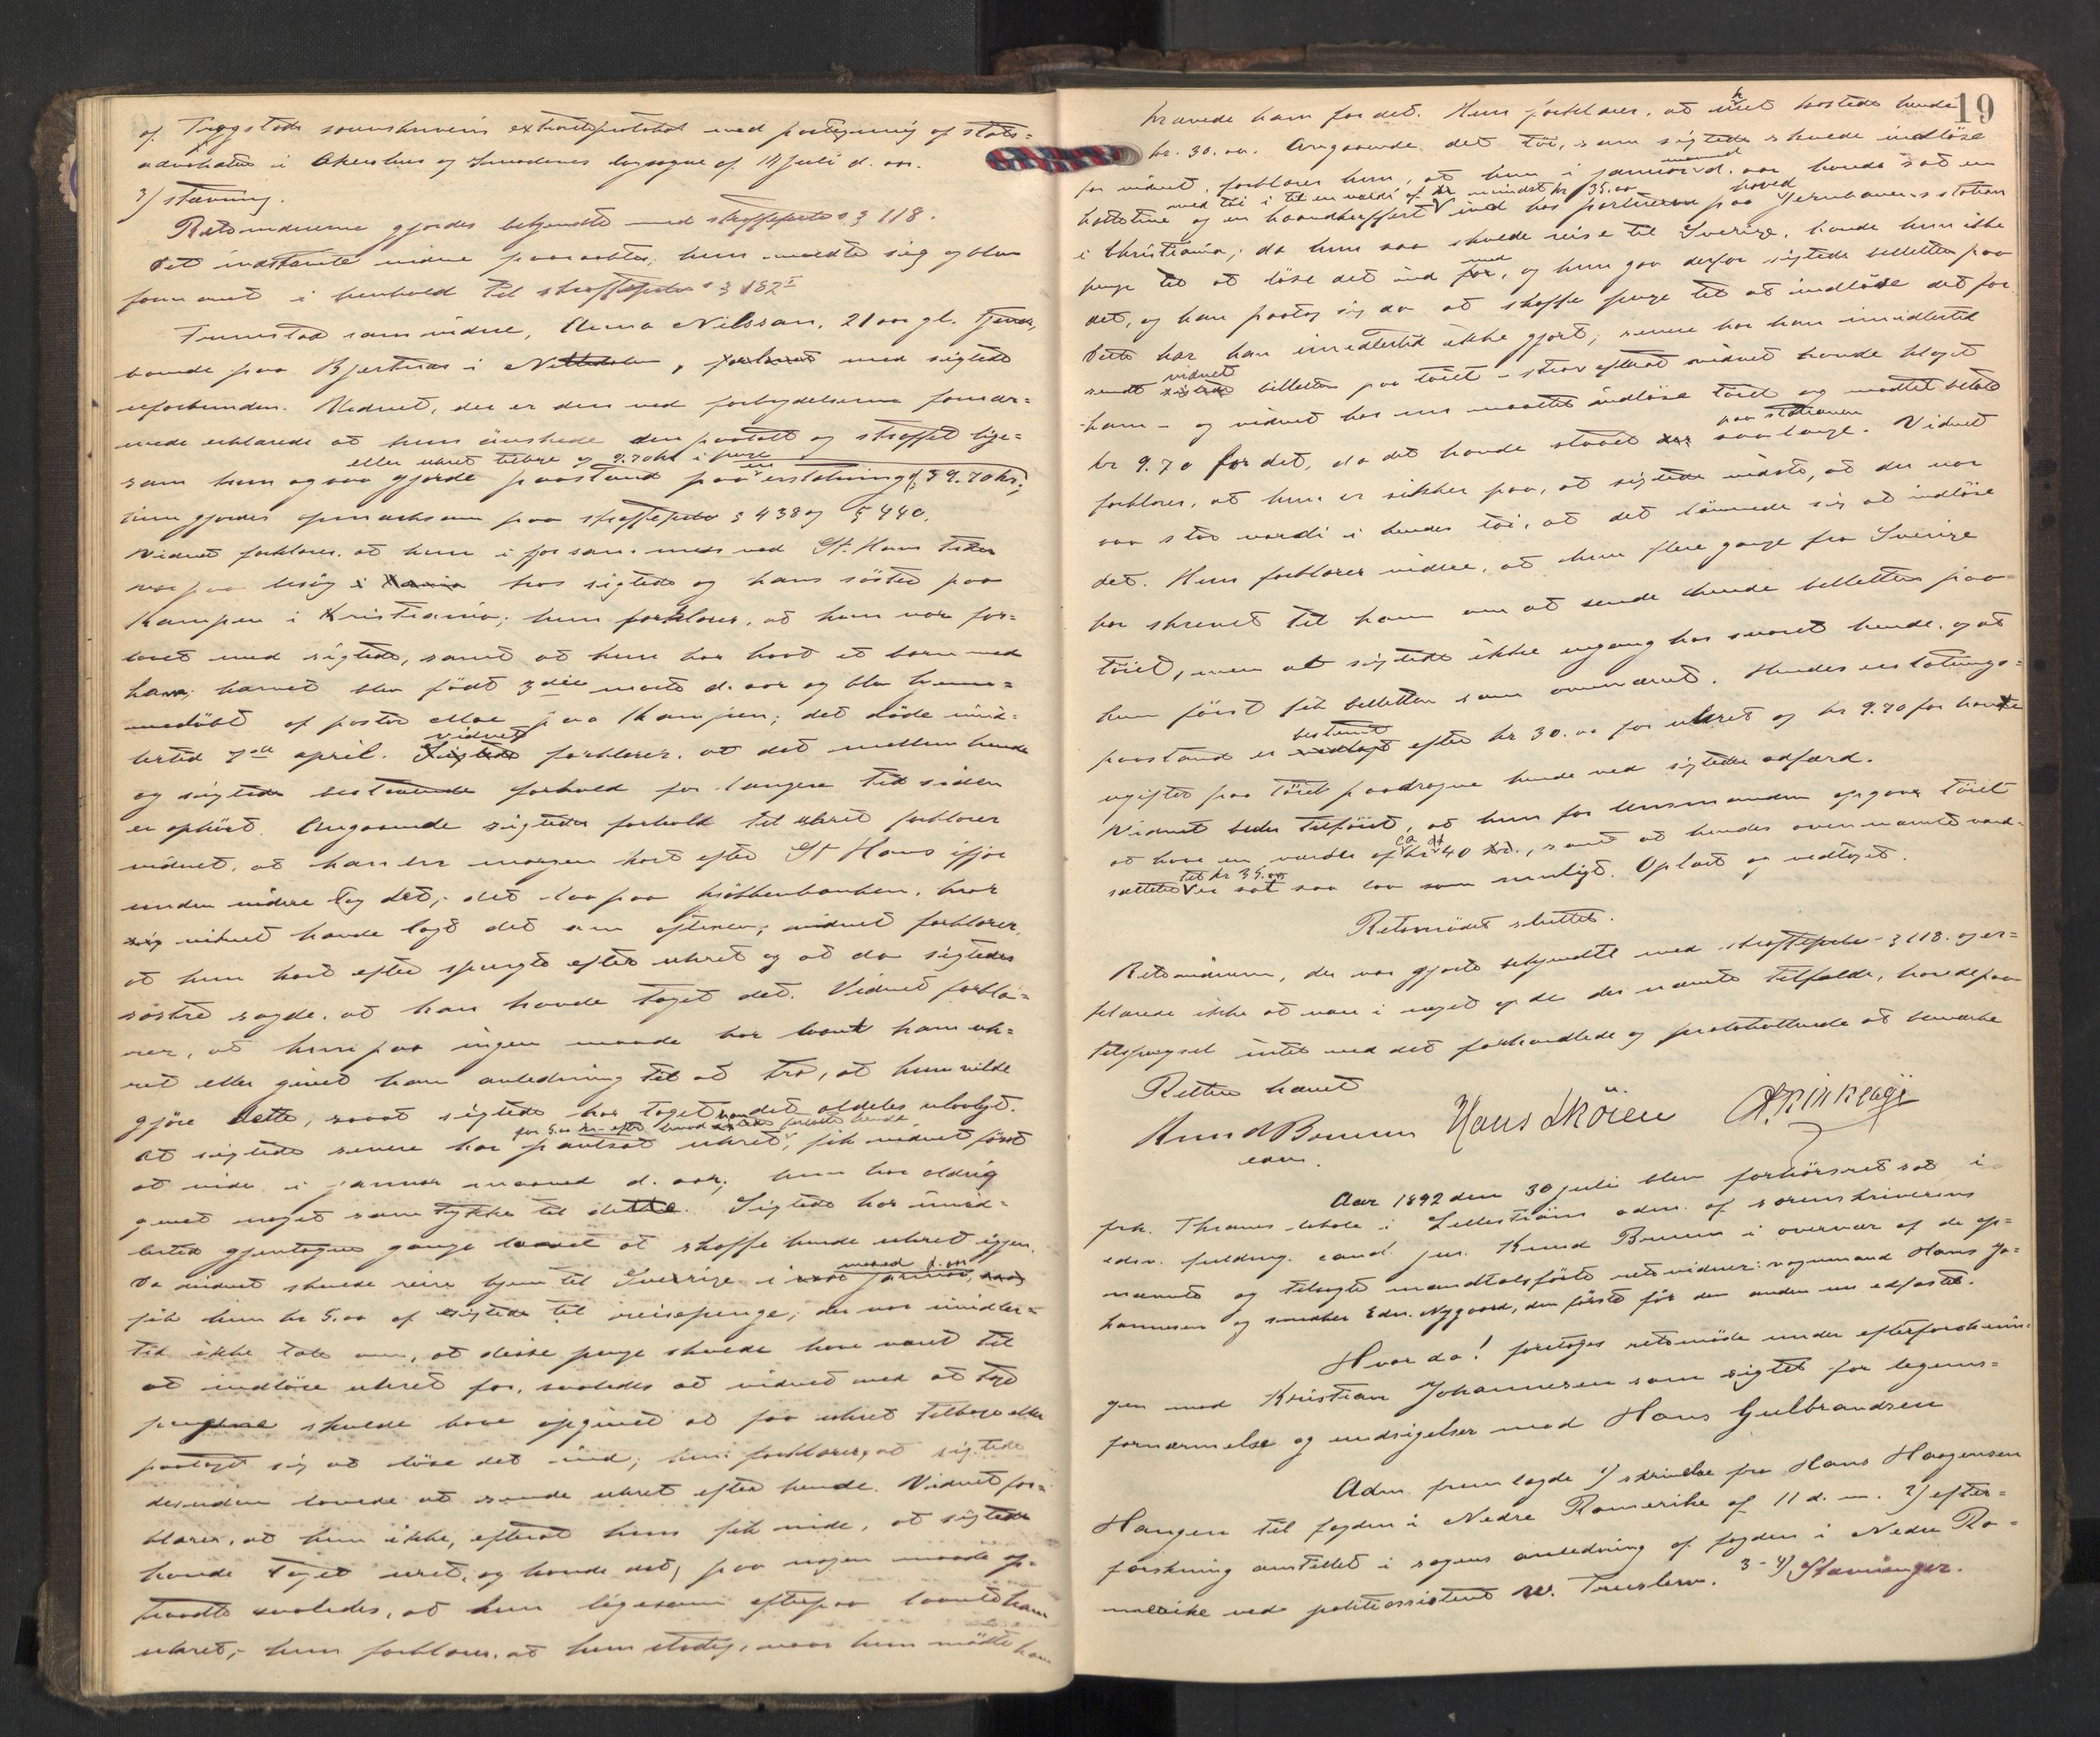 af Trygstads sorenskriveris extraretsprotokol med paategning af stats=
advokaten i Akershus og Smaalenenes lagsogne af 14 juli d. aar.
3) stævning.
Retsvidnerne gjordes bekjendte med straffeprls § 118.
Det indstævnte vidne paaraabtes; hun meldte sig og blev
formanet i henhold til straffeprls § 182
Fremstod som vidne, Anna Nilssen, 21 aar gl. tjen
paa Bjertnæs i Nittedalen, forlovet med sigtede
uforbunden. Vidnet, der er den ved forbrydelserne fornær=
mede erklærede at hun önskede den paatalt og straffet lige=
eller uhret tilbage og 9.70 kr i penge
som hun ogsaa gjorde paastand paa erstatning 39.70 kr;
hun gjordes opmerksom paa straffeprls § 438 og § 440.
Vidnet forklarer, at hun i fjor sommer ved St. Hans tider
var paa besög i hos sigtede og hans söster paa
Kampen i Kristiania; hun forklarer, at hun var for=
lovet med sigtede, samt at hun har havt et barn med
ham; barnet blev födt 3die marts d. aar og blev hjemme=
medöbt af pastor paa Kampen; det döde imid=
lertid 7de april. Sigtede vidnet forklarer, at det mellem hende
og sigtede bestaaende forhold for længere tid siden
er ophört. Angaaende sigtedes forhold til uhret forklarer
vidnet, at han en morgen kort efter St Hans ifjor
uden videre tog det; det laa paa kjökkenbænken, hvor
vidnet havde lagt det om aftenen; vidnet forklarer,
at hun kort efter spurgte efter uhret og at da sigtedes
söster sagde, at han havde taget det. Vidnet forkla=
rer, at hun paa ingen maade har laant ham uh=
ret eller givet ham anledning til at tro, at hun vilde
gjöre dette, saaat sigtede har taget det aldeles ulovligt.
for 5.00 kr efter hvad han fortalte hende
At sigtede senere har pantsat uhret, fik vidnet först
at vide i januar maaned d. aar; hun har aldrig
givet noget samtykke til dette. Sigtede har imid=
lertid gjentagne gange lovet at skaffe hende uhret igjen.
Da vidnet skulde reise hjem til Sverige i januar maaned d. aar,
fik hun kr 5.00 af sigtede til reisepenge; der var imidler=
tid ikke tale om, at disse penge skulde have været til
at indlöse uhret for, saaledes at vidnet med at tage
pengene skulde have opgivet at faa uhret tilbage eller
paataget sig at löse det ind; hun forklarer, at sigtede
desuden lovede at sende uhret efter hende. Vidnet for=
klarer, at hun ikke, efterat hun fik vide, at sigtede
havde taget uret, og havde det, paa nogen maade op=
traadte saaledes, at hun ligesom efterpaa laante ham
uhret; hun forklarer, at hun stadig, naar hun mödte ham
19
krævede ham for det. Hun forklarer, at uhret kostede hende
kr. 30.00. Angaaende det töi, som sigtede skulde indlöse
for vidnet, forklarer hun, at hun i januar maaned d. aar havde sat en
med töi i til en værdi af mindst kr 35.00
hatteine og en haandkuffert ind hos portieren paa Hovedjernbanens station
i Christiania; da hun saa skulde reise til Sverige, havde hun ikke
penge til at löse det ind med, og hun gav derfor sigtede billetten paa
det, og han paatog sig da at skaffe penge til at indlöse det for.
Dette har han imidlertid ikke gjort; senere har han imidlertid
sendt vidnet billetten paa töiet – strax efterat vidnet havde klaget
ham – og vidnet har nu maattet indlöse töiet og maattet betale
kr 9.70 for det, da det havde staaet paa stationen saa længe. Vidnet
forklarer, at hun er sikker paa, at sigtede vidste, at der var
saa stor værdi i hendes töi, at det lönnede sig at indlöse
det. Hun forklarer videre, at hun flere gange fra Sverige
har skrevet til ham om at sende hende billetten paa
töiet, men at sigtede ikke engang har svaret hende, og at
hun först fik billetten som ovennævnt. Hendes erstatnings=
paastand er bestemt efter kr 30.00 for uhret og kr 9.70 for havte
utgifter paa töiet paadragne hende ved sigtedes adfærd.
Vidnet beder tilföiet, at hun for lensmanden opgav töiet
at have en værdi af ca kr 40, samt at hendes ovennævnte værd=
sættelse til kr 35.00 er sat saa lav som muligt. Oplæst og vedtaget.
Retsmödet sluttet.
Retsvidnerne, der var gjorte bekjendte med straffeprls § 118. og er=
klærede ikke at være i noget af de der nævnte tilfælde, havde paa
tilspörgsel intet ved det forhandlede og protokollerede at bemærke
Retten hævet
Knud Bruun Hans Sköien A. Kirkeby
edsv.
Aar 1892 den 30 juli blev forhörsret sat i
frk. Thranes lokale i Lilleström adm. af sorenskriverens
edsv. fuldmg. cand. jur. Knud Bruun i overvær af de op=
nævnte og tilsagte mandtalsförte retsvidner: vognmand Hans Jo=
hannesen og snedker Edv. Nygaard, den förste för den anden nu edfæstet.
Hvor da! foretoges retsmöde under efterforsknin=
gen mod Kristian Johannesen som sigtet for legems=
fornærmelse og undsigelser mod Hans Gulbrandsen
Adm. fremlagde 1) skrivelse fra Hans Haagensen
Haugen til fogden i Nedre Romerike af 11 d. m. 2) efter=
forskning anstillet i sagens anledning af fogden i Nedre Ro=
merike ved politiassistent Truslew. 3-4) Stævninger.